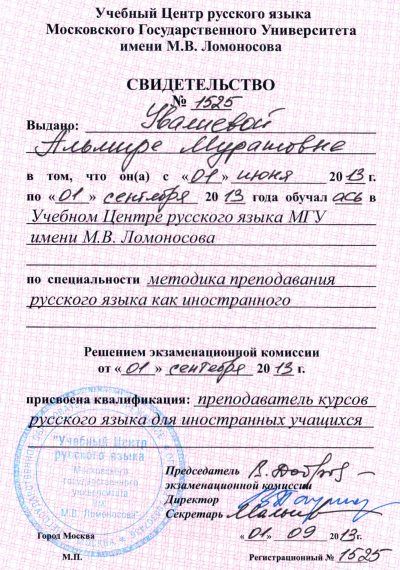 Учебный Центр русского языка
Московского Государственного Университета
имени М.В. Ломоносова
СВИДЕТЕЛЬСТВО
№ 1525
Выдано: Увалиевой
Альмире Муратовне
в том, что он(а) с «01» июня 2013 г.
по «01» сентября 2013 года обучалась в
Учебном Центре русского языка МГУ
имени М.В. Ломоносова
по специальности методика преподавания
русского языка как иностранного
Решением экзаменационной комиссии
от «01» сентября 2013 г.
присвоена квалификация: преподаватель курсов
русского языка для иностранных учащихся
"Учебный Центр
русского языка
Московского
государственного
университета
М.В. Ломоносова"
Председатель
экзаменационной комиссии
Директор
Секретарь
Город Москва «01» 09 2013г.
М.П. Регистрационный № 1525